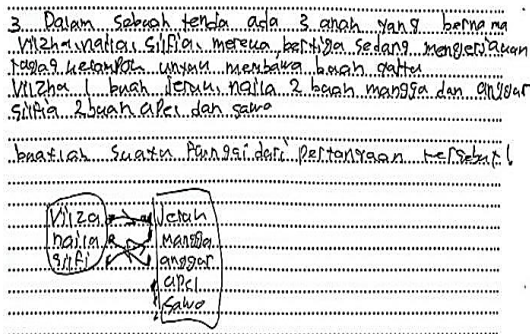 3. Dalam sebuah tenda ada 3 anak yang bernama
Vilzha, naila, silfia, mereka bertiga sedang mengerjakan
tugas kelompok untuk membawa buah yaitu
Vilzha 1 buah jeruk, naila 2 buah mangga dan anggur
silfia 2 buah apel dan sawo
buatlah suatu fungsi dari pertanyaan tersebut!
Vilza
naila
silfi
Jeruk
mangga
anggur
apel
sawo